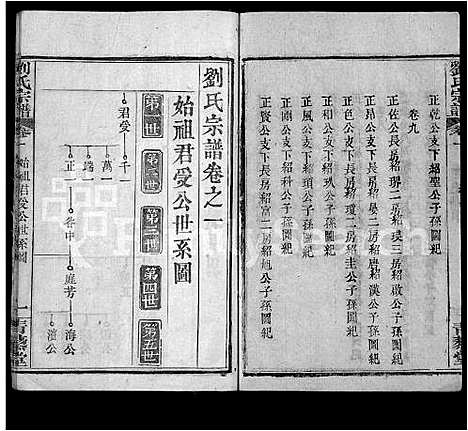 劉氏宗譜
正乾公支下紹聖公子孫圖紀
卷九
正佐公長房紹琪二房紹瑛三房紹啟公子孫圖紀
正昂公支下長房紹晏二房紹唐紹漢公子孫圖紀
正貴公支下長房紹瓊二房紹圭公子孫圖紀
正風公支下紹瑣公子孫圖紀
正和公支下紹玖公子孫圖紀
正文公支下紹科公子孫圖紀
正賢公支下長房紹富二房紹旭公子孫圖紀
劉氏宗譜卷之一
始祖君受公世系圖
第一世
第二世
第三世
第四世
第五世
君受
千一
萬一
端
正
谷中
庭芳
海公
濱公
劉氏宗譜
卷一
始祖君受公世系圖
一
青藜堂